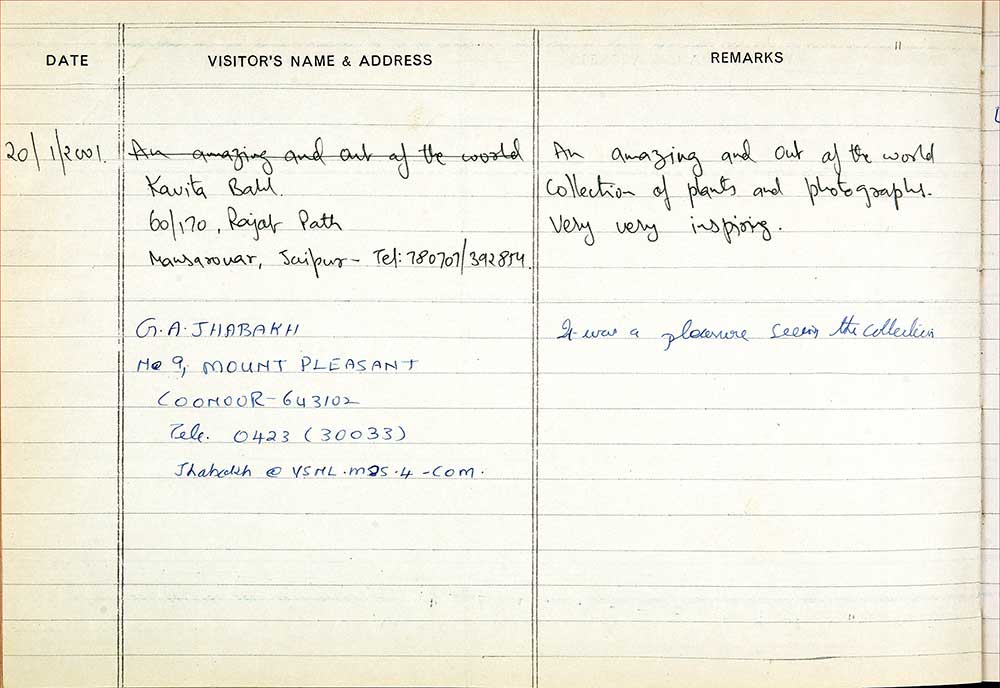 DATE VISITOR'S NAME & ADDRESS REMARKS
20/1/2001. An amazing and out of the world
Kavita Bahl.
60/170, Rajat Path
Mansarovar, Jaipur - Tel: 780707/392854.
An amazing and out of the world
Collection of plants and photographs.
Very very inspiring.
G.A. JHABAKH
No 9, MOUNT PLEASANT
COONOOR - 643102
Tele. 0423 (30033)
Jhabakh @ VSNL.
It was a pleasure seeing the collection